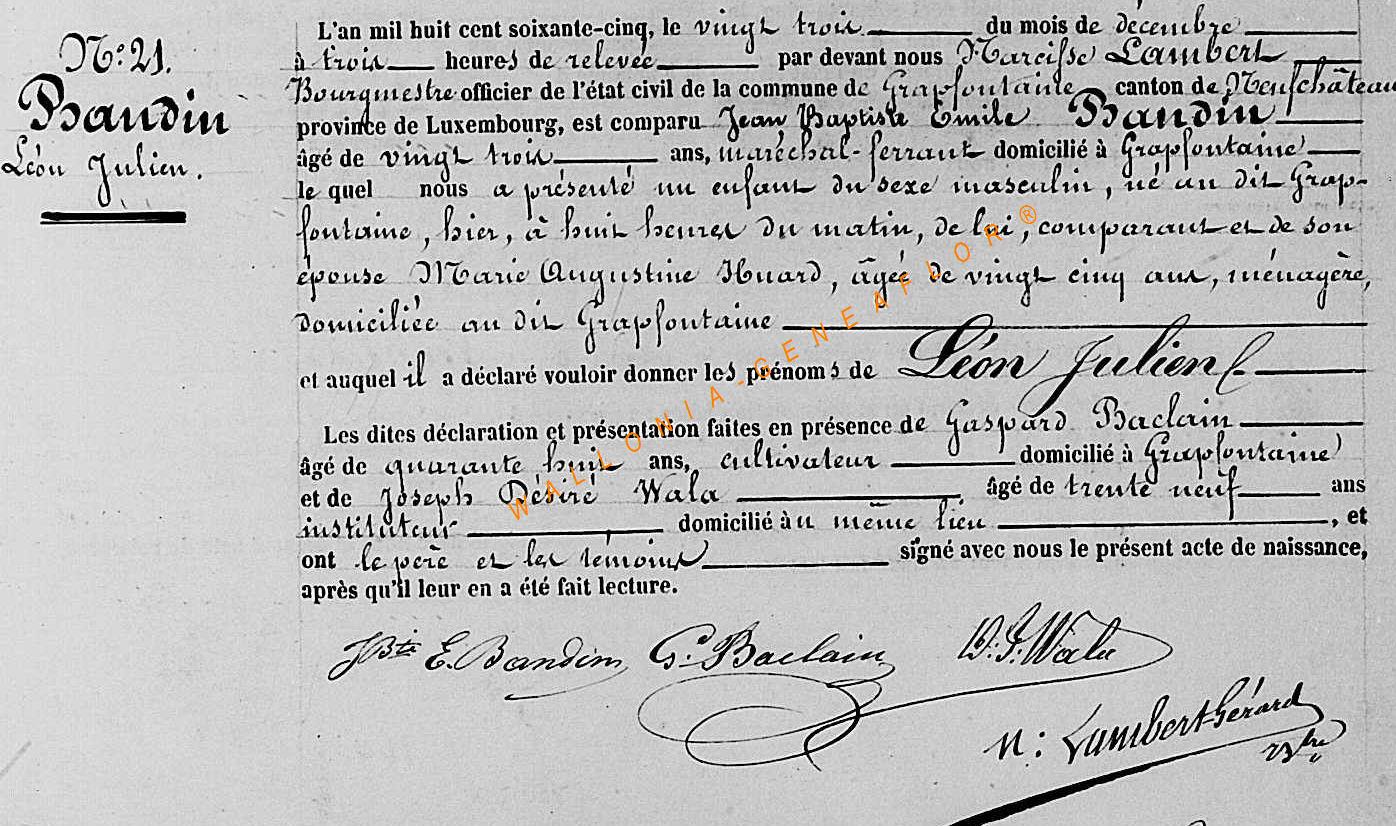 N.° 21.
Baudin
Léon Julien.
L'an mil huit cent soixante-cinq, le vingt trois du mois de décembre
à trois heures de relevée par devant nous Narcisse Lambert
Bourgmestre officier de l'état civil de la commune de Grapfontaine canton de Neufchâteau
province de Luxembourg, est comparu Jean Baptiste Emile Baudin
âgé de vingt trois ans, maréchal-ferrant domicilié à Grapfontaine
le quel nous a présenté un enfant du sexe masculin, né au dit Grap-
fontaine, hier, à huit heures du matin, de lui, comparant et de son
épouse Marie Augustine Huard, âgée de vingt cinq ans, ménagère,
domiciliée au dit Grapfontaine
et auquel il a déclaré vouloir donner les prénoms de Léon Julien
Les dites déclaration et présentation faites en présence de Gaspard Baclain
âgé de quarante huit ans, cultivateur domicilié à Grapfontaine
et de Joseph Désiré Wala âgé de trente neuf ans
instituteur domicilié au même lieu, et
ont le père et les témoins signé avec nous le présent acte de naissance,
après qu'il leur en a été fait lecture.
Jbte E. Baudin G. Baclain D. J. Wala
N: Lambert-Gérard
WALLONIA-GENEAFLOR®